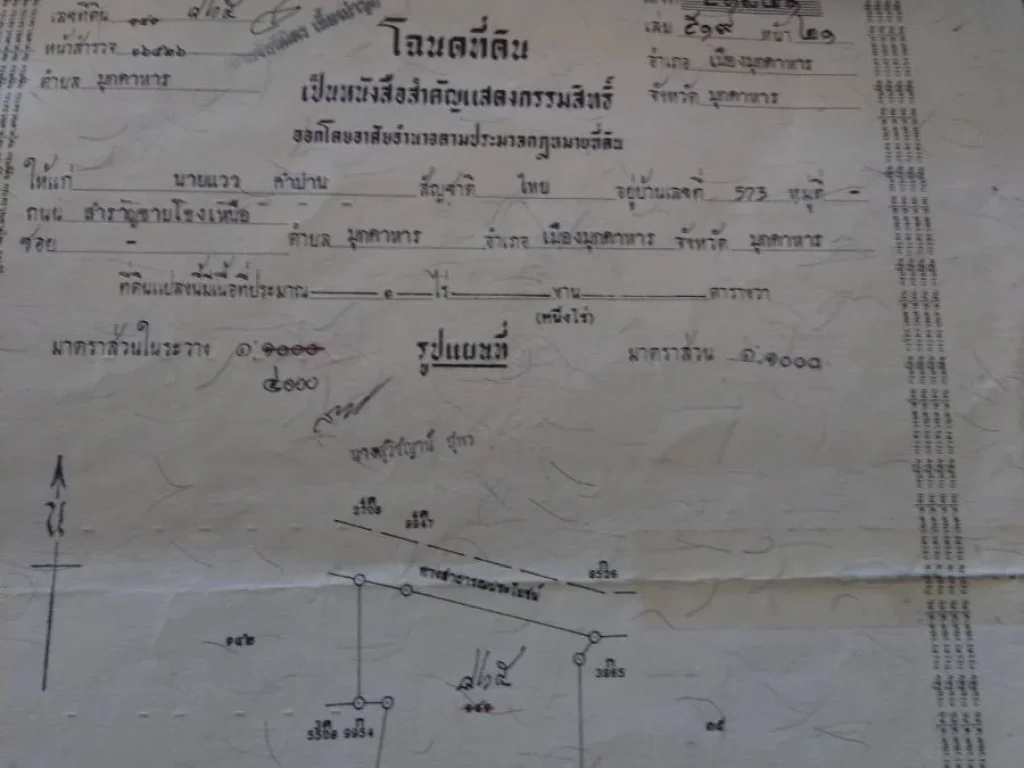 เลขที่ดิน ๑๔๑
หน้าสำรวจ ๑๖๕๒๖
ตำบล มุกดาหาร
โฉนดที่ดิน
เล่ม ๕๑๙ หน้า ๒๑
อำเภอ เมืองมุกดาหาร
จังหวัด มุกดาหาร
เป็นหนังสือสำคัญแสดงกรรมสิทธิ์
ออกโดยอาศัยอำนาจตามประมวลกฎหมายที่ดิน
ให้แก่ นายแวว คำปาน สัญชาติ ไทย อยู่บ้านเลขที่ 573 หมู่ที่ -
ถนน สำราญชายโขงเหนือ
ซอย - ตำบล มุกดาหาร อำเภอ เมืองมุกดาหาร จังหวัด มุกดาหาร
ที่ดินแปลงนี้มีเนื้อที่ประมาณ ๑ ไร่ งาน ตารางวา
(หนึ่งไร่)
มาตราส่วนในระวาง ๑:๑๐๐๐
๔๐๐๐
รูปแผนที่
มาตราส่วน ๑:๑๐๐๐
น
ทางสาธารณประโยชน์
8526
๑๔๒
3965
๑๔๑
๓๕